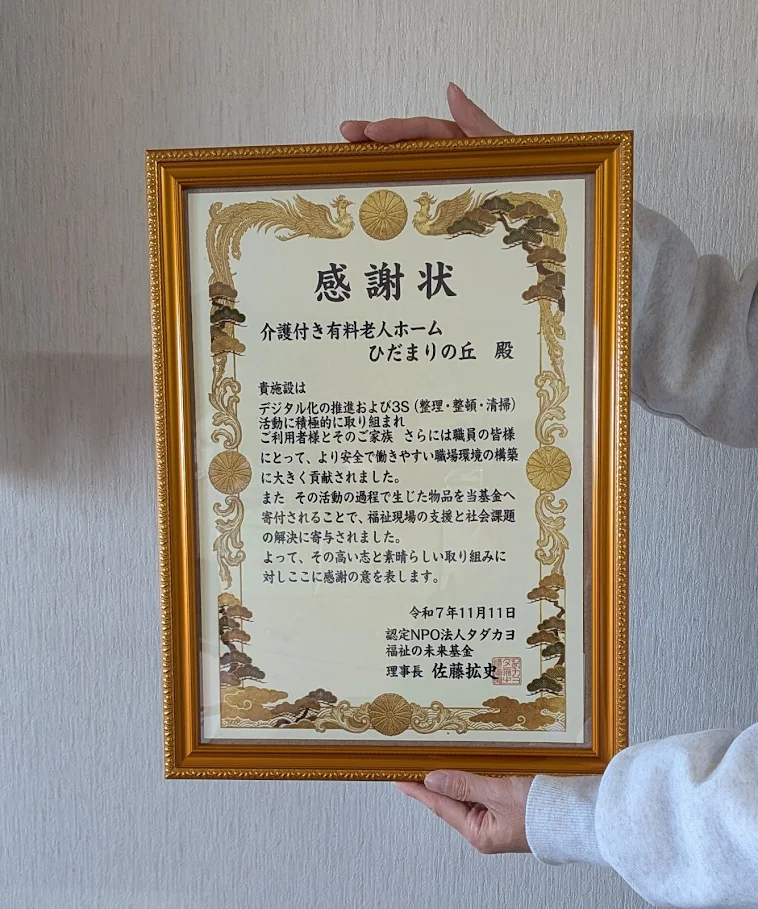 感謝状
介護付き有料老人ホーム
ひだまりの丘 殿
貴施設は
デジタル化の推進および3S（整理・整頓・清掃）
活動に積極的に取り組まれ
ご利用者様とそのご家族 さらには職員の皆様
にとって、より安全で働きやすい職場環境の構築
に大きく貢献されました。
また その活動の過程で生じた物品を当基金へ
寄付されることで、福祉現場の支援と社会課題
の解決に寄与されました。
よって、その高い志と素晴らしい取り組みに
対しここに感謝の意を表します。
令和7年11月11日
認定NPO法人タダカヨ
福祉の未来基金
理事長 佐藤拡史